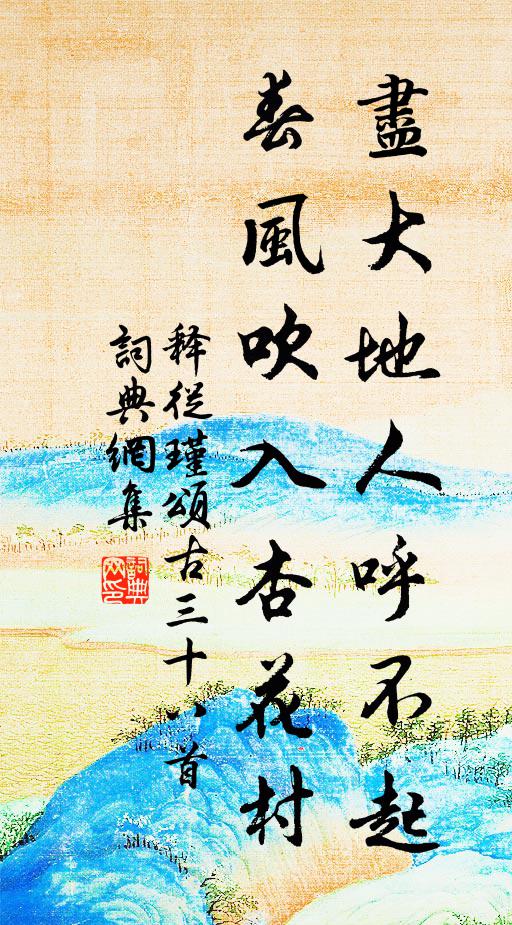 盡大地人呼不起
春風吹入杏花村
释從瑾頌古三十八首
詞典網集
詞典
网印